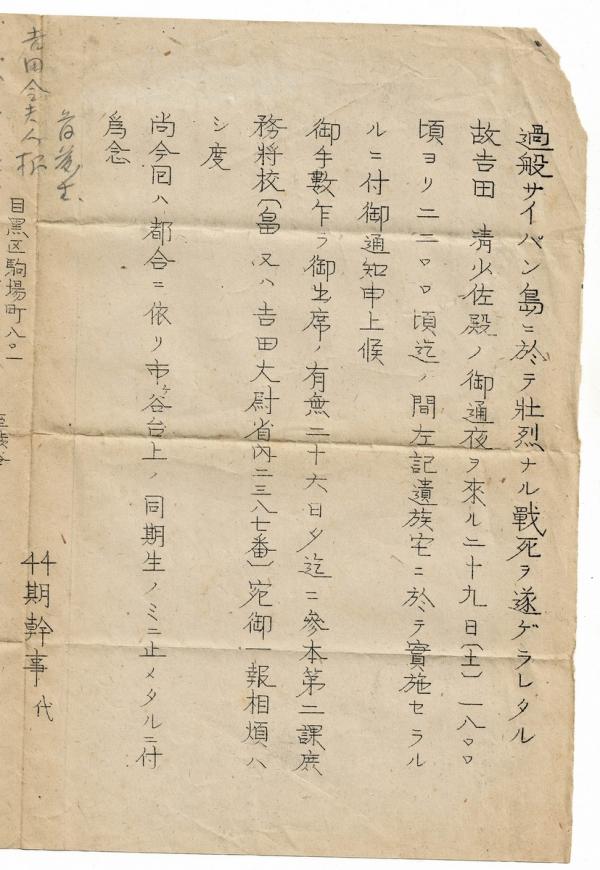 過般サイパン島ニ於テ壯烈ナル戰死ヲ遂ゲラレタル
故吉田 清少佐殿ノ御通夜ヲ來ル二十九日(土)一八〇〇
頃ヨリ二二〇〇頃迄ノ間左記遺族宅ニ於テ實施セラル
ルニ付御通知申上候
御手數乍ラ御出席ノ有無二十六日夕迄ニ參本第二課庶
務將校(畠 又ハ吉田大尉省內二三八七番)宛御一報相煩ハ
シ度
尚今回ハ都合ニ依リ市ヶ谷台上ノ同期生ノミニ止メタルニ付
爲念
44期幹事代
吉田 夫人
目黑区駒場町八〇一